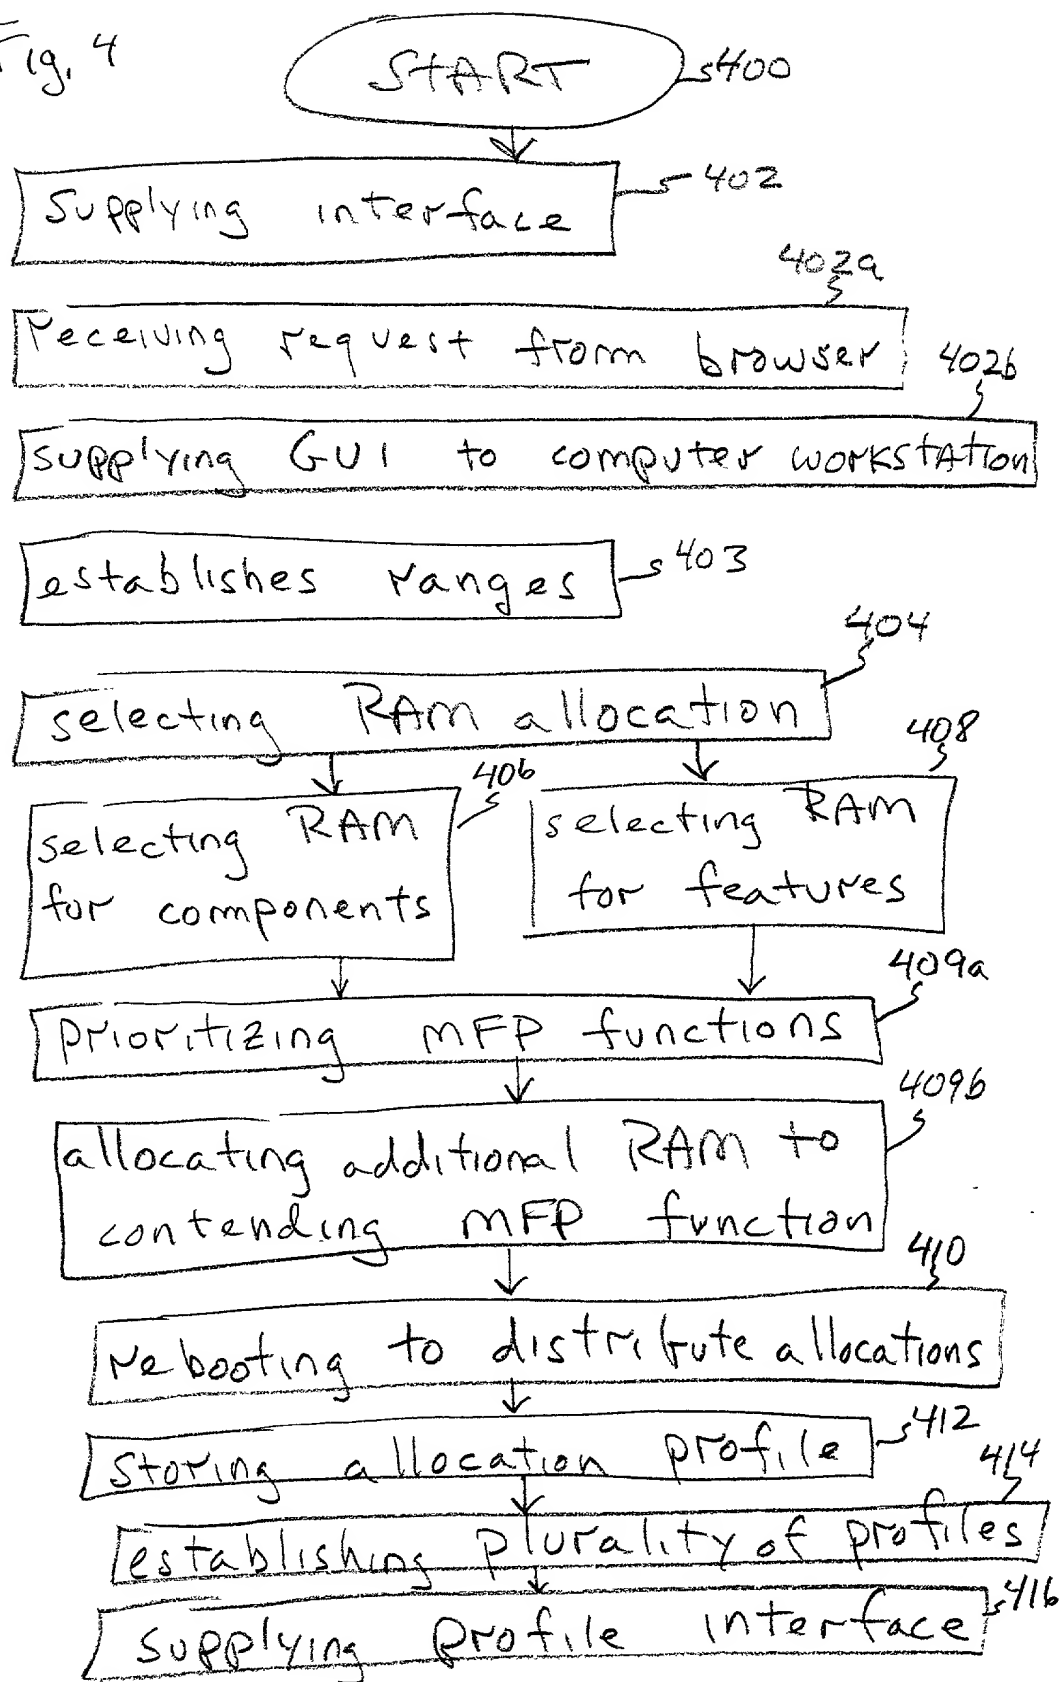 Fig. 4
START
400
supplying interface
402
402a
receiving request from browser
402b
supplying GUI to computer workstation
establishes ranges
403
404
selecting RAM allocation
406
408
selecting RAM
for components
selecting RAM
for features
409a
prioritizing MFP functions
409b
allocating additional RAM to
contending MFP function
410
rebooting to distribute allocations
412
storing allocation profile
414
establishing plurality of profiles
416
supplying profile interface